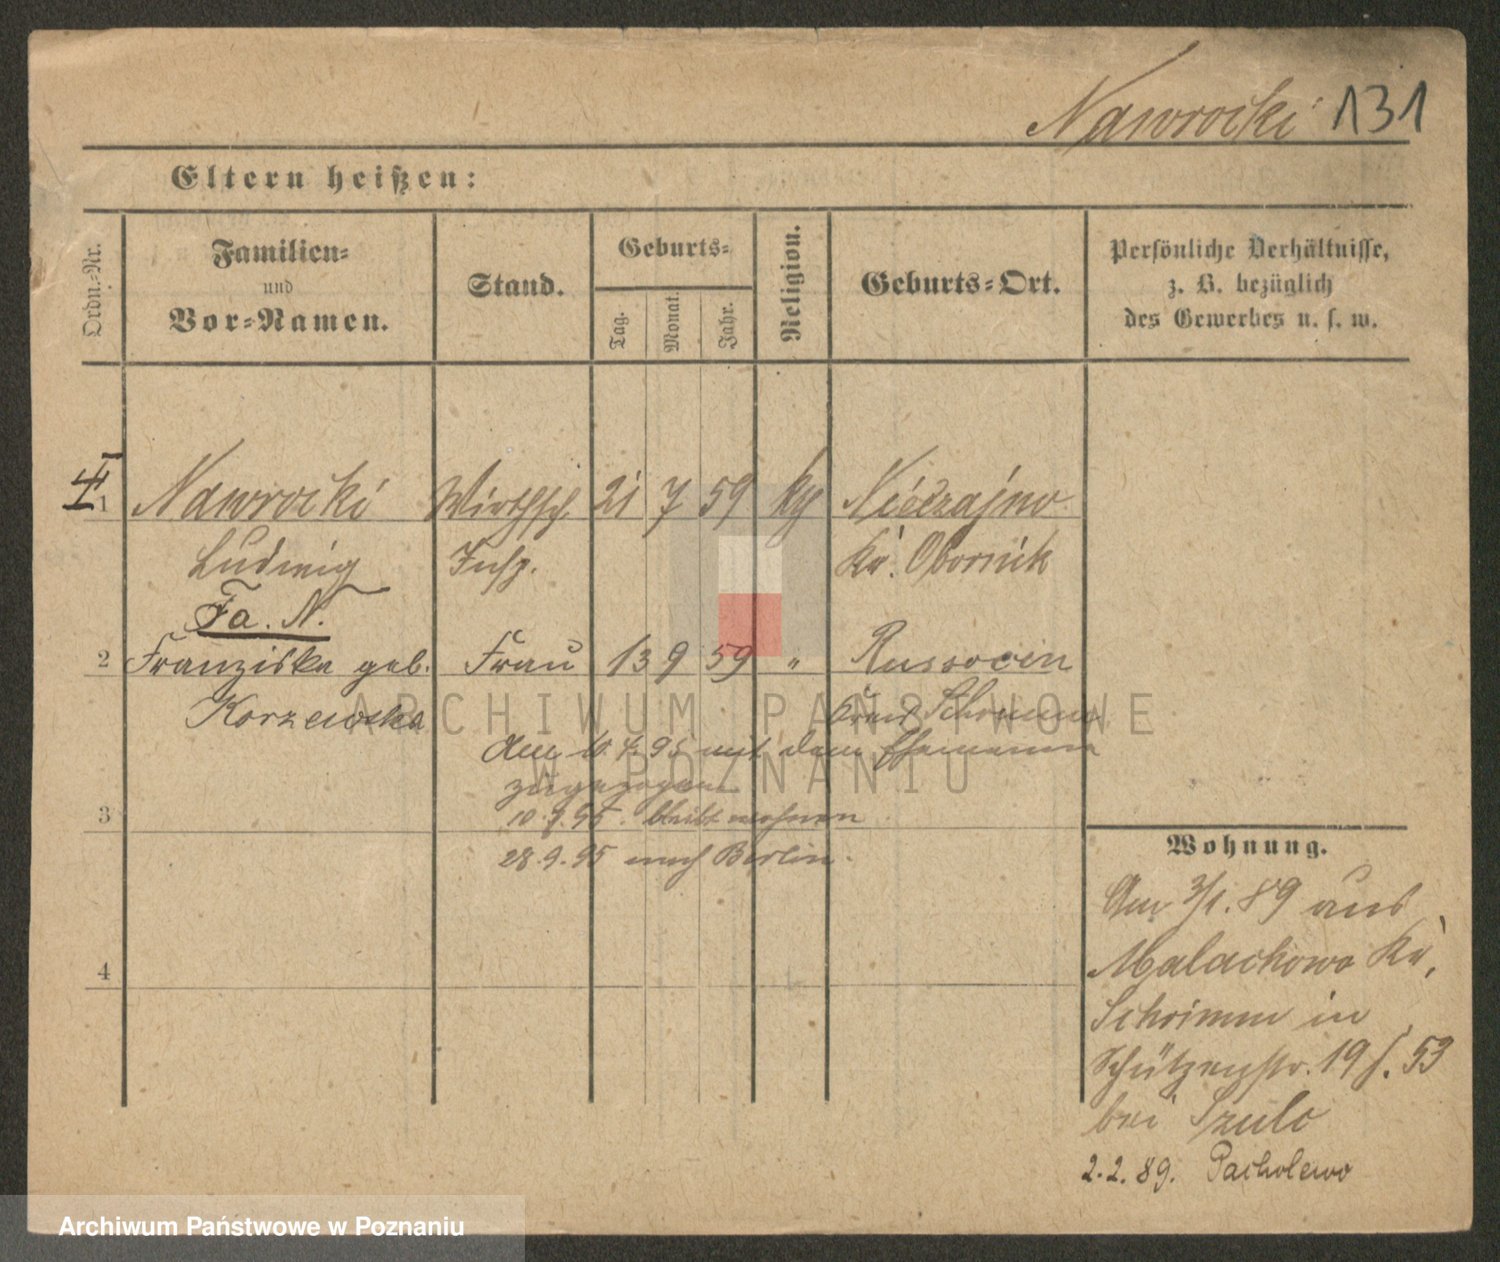 Nawrocki 131
Eltern heißen:
Ordn.-Nr.
Familien-
und
Vor-Namen.
Stand.
Geburts-
Tag.
Monat.
Jahr.
Religion.
Geburts-Ort.
Persönliche Verhältnisse,
z. B. bezüglich
des Gewerbes u. s. w.
1 Nawrocki Wirthsch. 21 7 59 Nieczajno
Ludwig Insp. Kr. Obornik
Fa. N.
2 Franziska geb. Frau 13 9 59 " Russocin
Korzewska Schrimm
Am 10.7.95 mit dem Ehemann
zugezogen
3 10.7.95. bleibt wohnen
28.9.95 nach Berlin.
4
Wohnung.
Am 3/1. 89 aus
Malachowo Kr.
Schrimm in
Schützenstr. 19 f. 53
bei Szulc
2.2.89. Pacholewo
ARCHIWUM PAŃSTWOWE
W POZNANIU
Archiwum Państwowe w Poznaniu